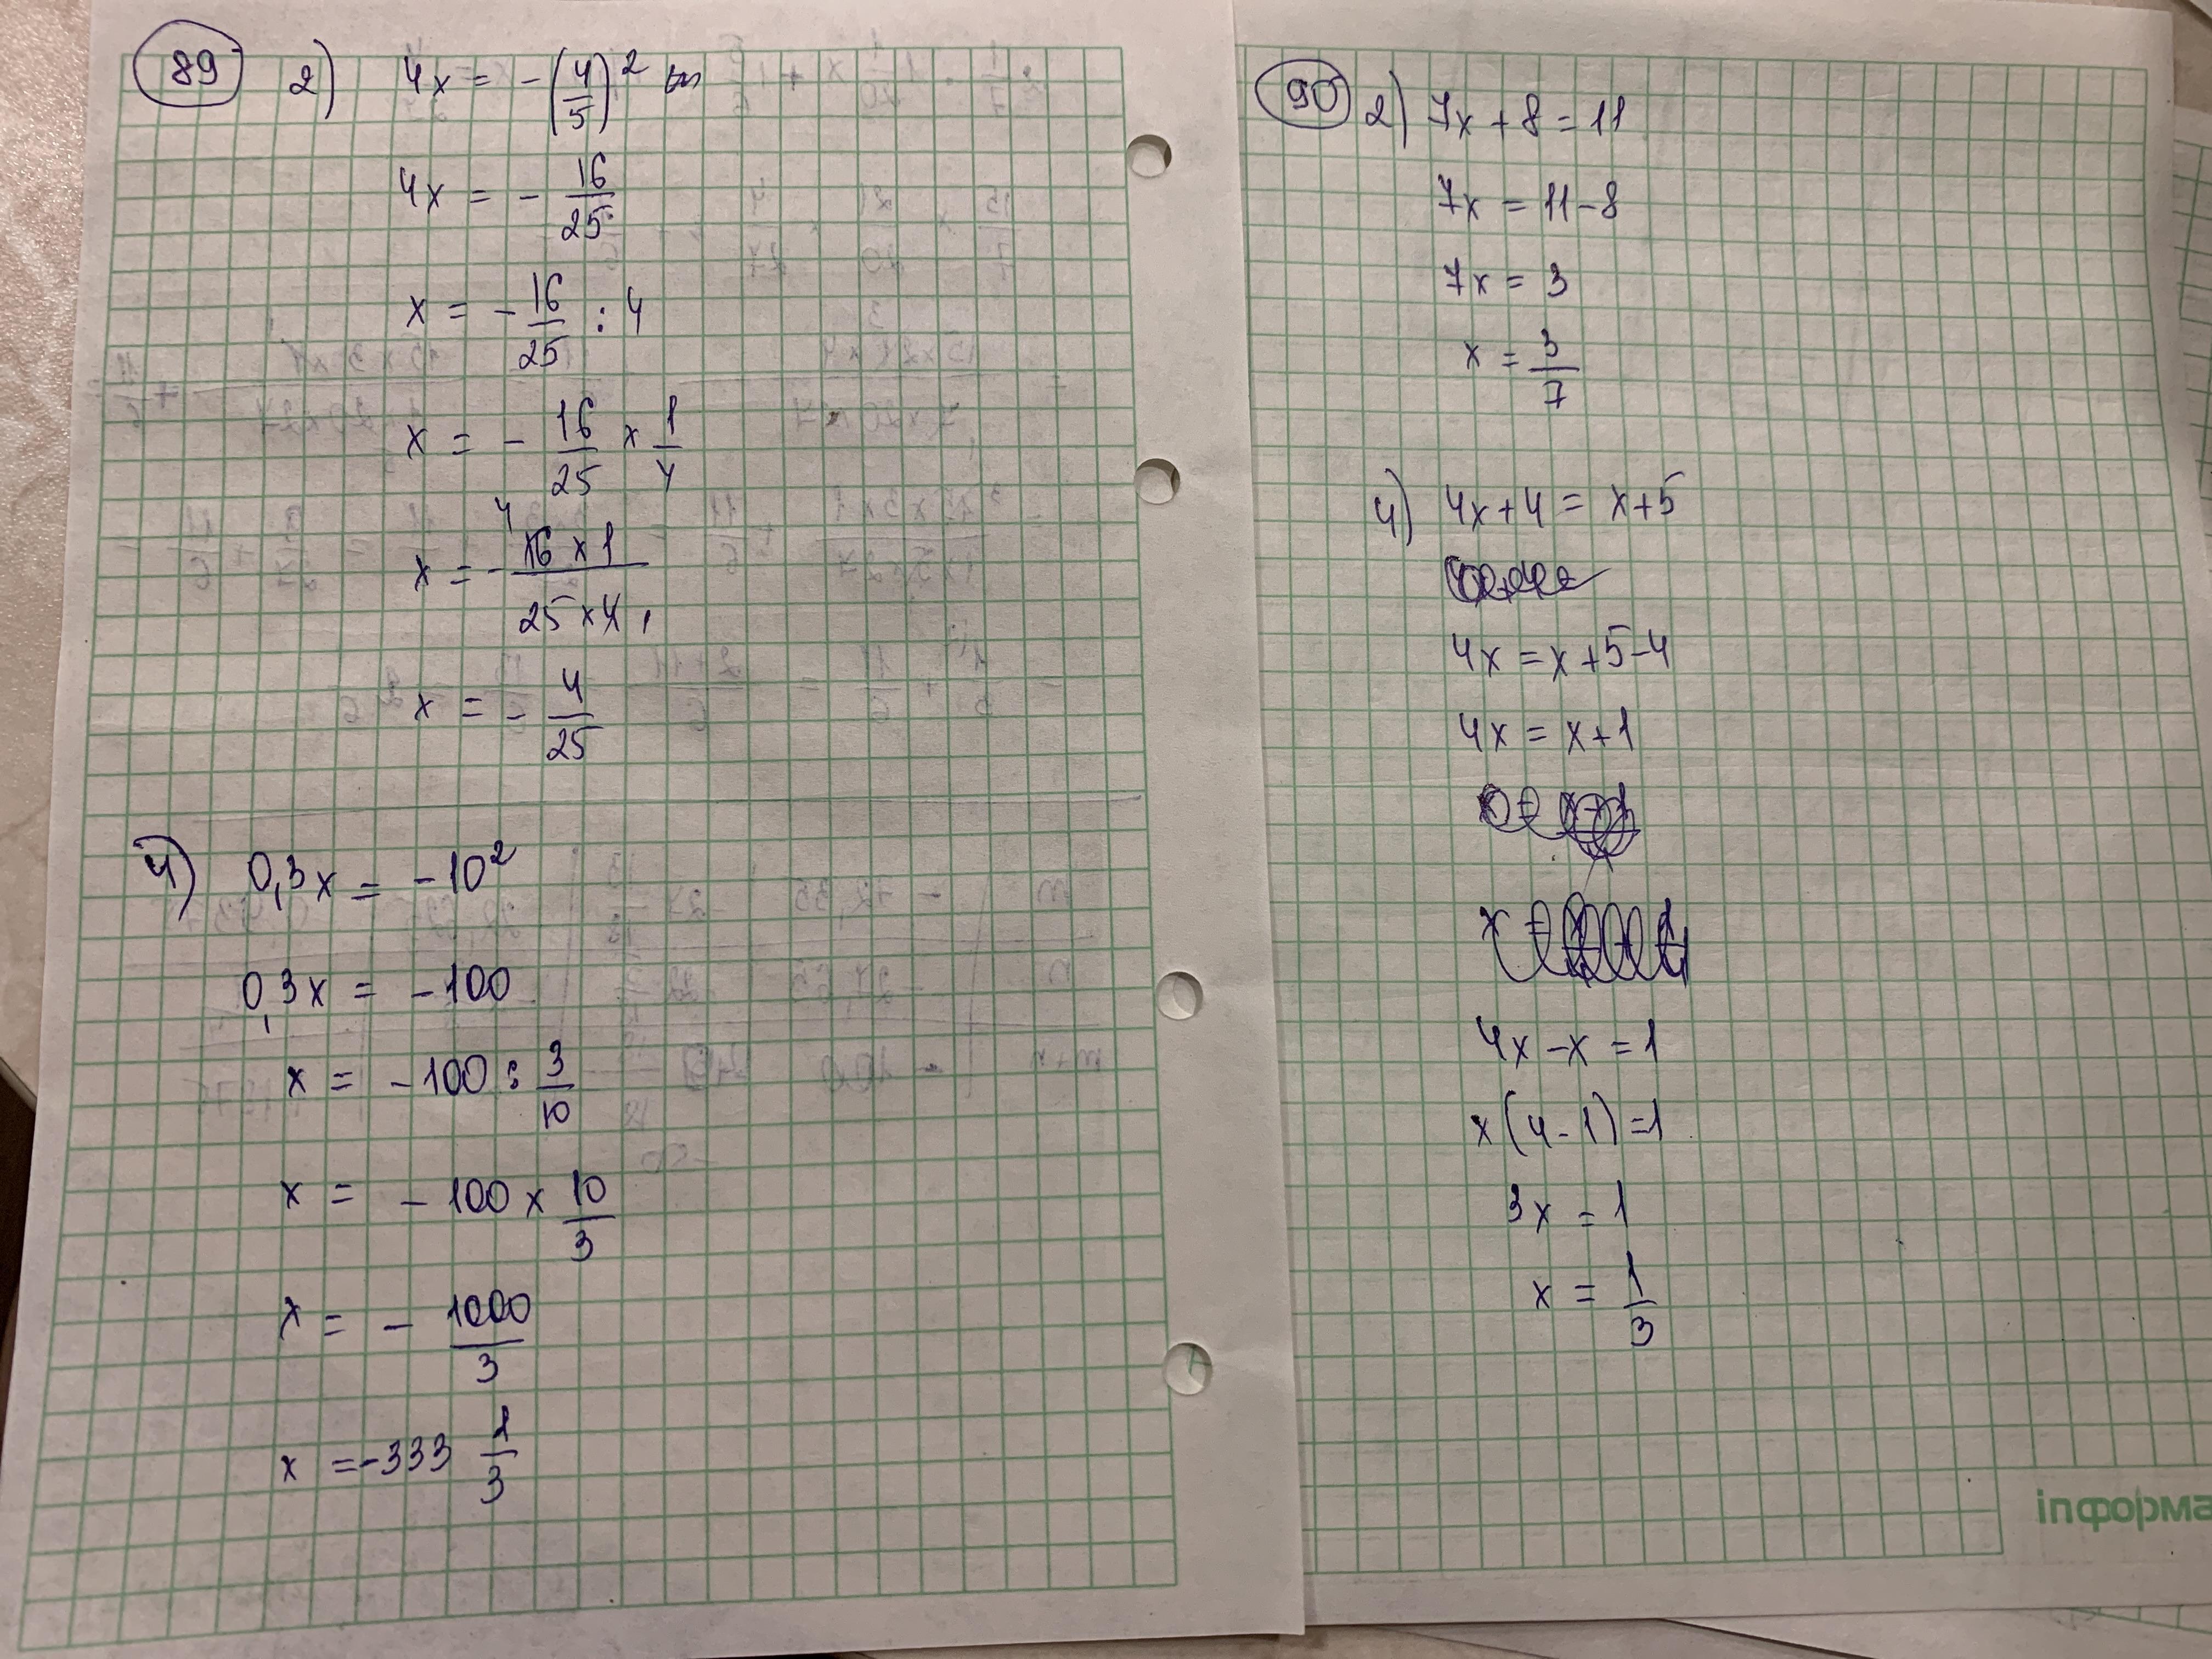 89 2) 4x = -(4/5)²
4x = - 16/25
x = - 16/25 : 4
x = - 16/25 × 1/4
4
x = - 16 × 1 / 25 × 4 1
x = - 4/25
4) 0,3x = -10²
0,3x = -100
x = -100 : 3/10
x = -100 × 10/3
x = - 1000/3
x = -333 1/3
90 2) 7x + 8 = 11
7x = 11 - 8
7x = 3
x = 3/7
4) 4x + 4 = x + 5
4x = x + 5 - 4
4x = x + 1
4x - x = 1
x (4 - 1) = 1
3x = 1
x = 1/3